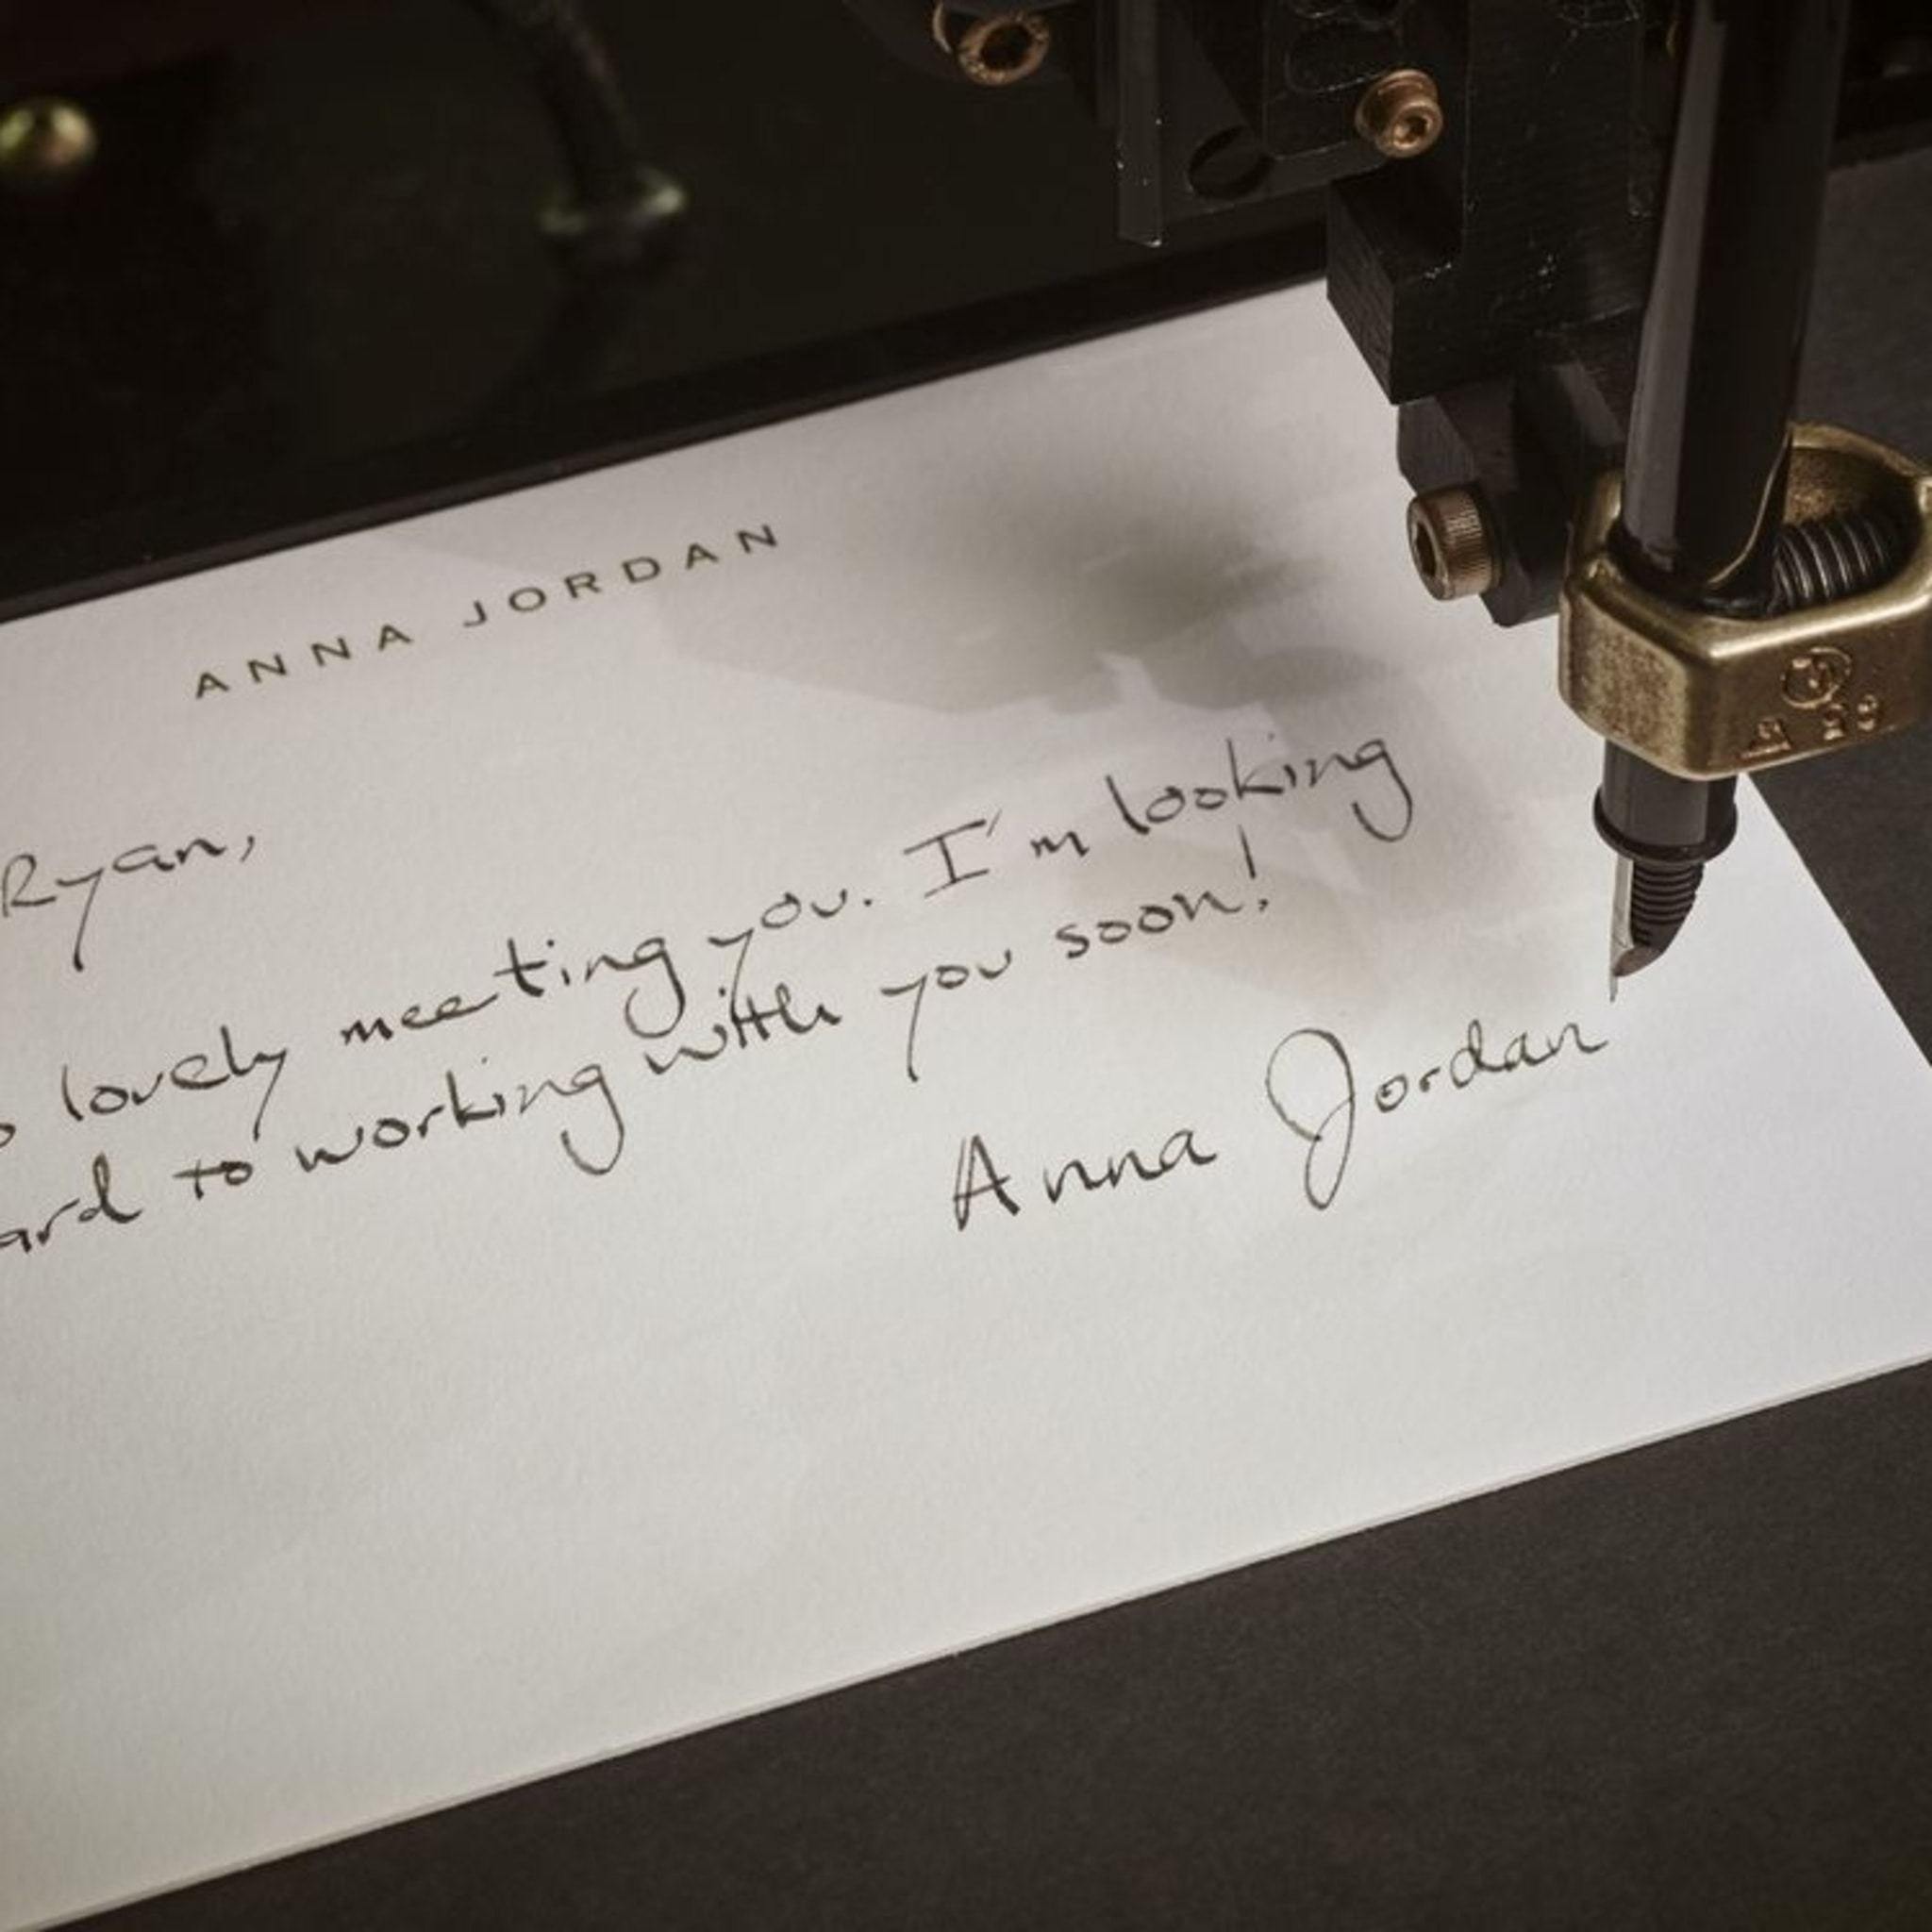 ANNA JORDAN
Ryan,
o lovely meeting you. I'm looking
ard to working with you soon!
Anna Jordan